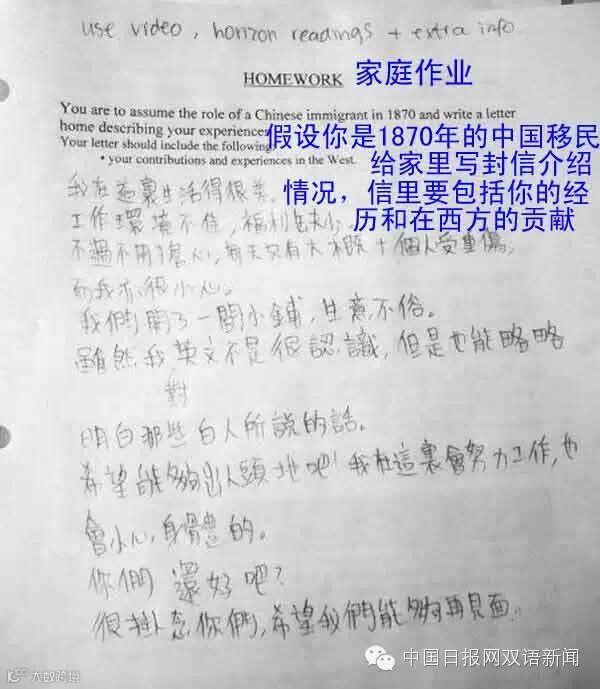 use video, horizon readings + extra info
HOMEWORK 家庭作业
You are to assume the role of a Chinese immigrant in 1870 and write a letter
home describing your experiences
假设你是1870年的中国移民
Your letter should include the following
• your contributions and experiences in the West.
给家里写封信介绍
情况，信里要包括你的经
历和在西方的贡献
我在這裏生活得很差
工作環境不佳，福利
不過不用擔心，每天只有大概十個人受重傷，
而我亦很小心。
我們開了一間小鋪，生意不俗。
雖然我對英文不是很認識，但是也能略略
明白那些白人所說的話。
希望能夠出人頭地吧！我在這裏會努力工作，也
會小心身體的。
你們還好吧？
很掛念你們，希望我們能夠再見面。
中国日报网双语新闻
大数跨境